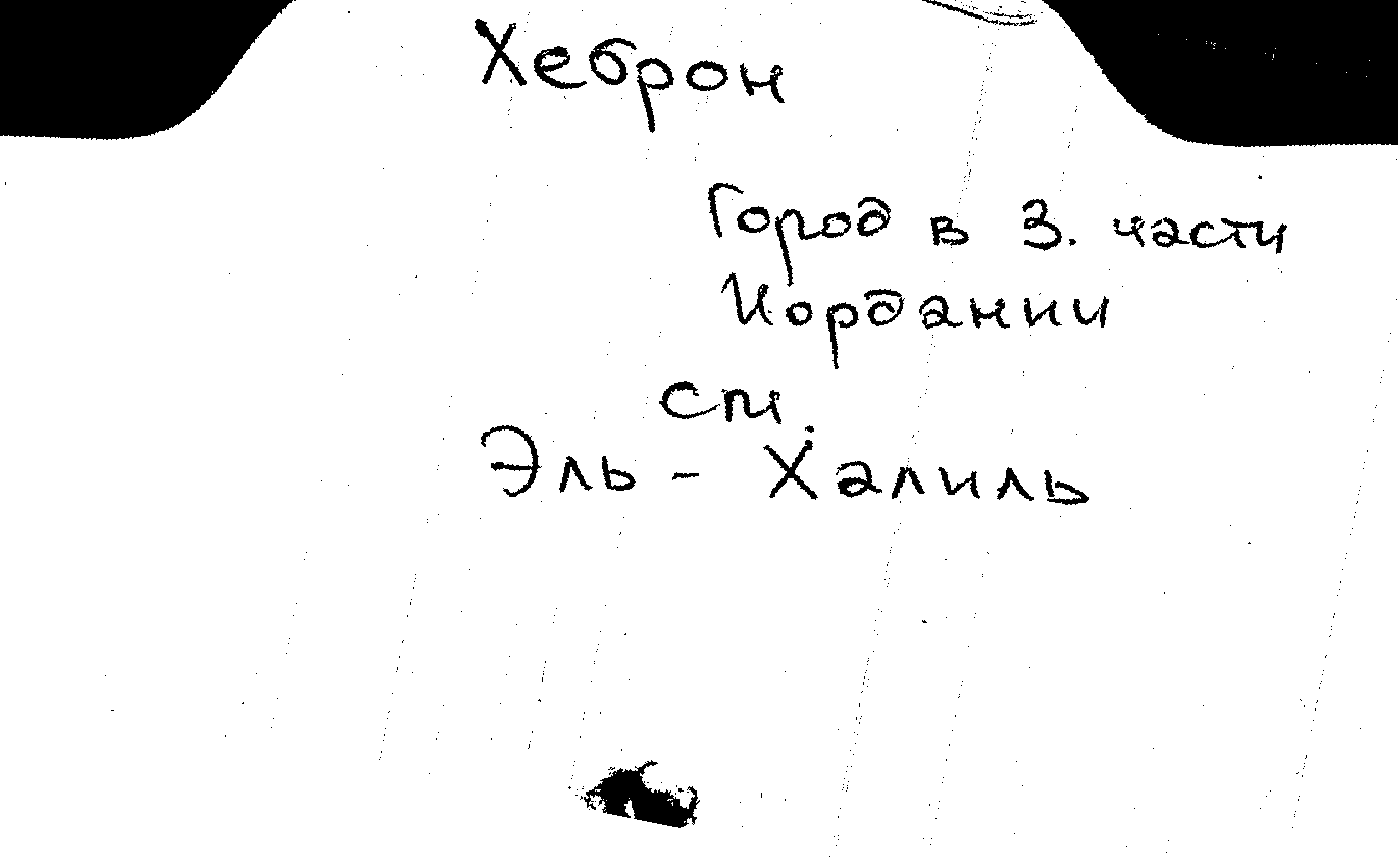 Хеброн
Город в З. части
Иордании
см.
Эль - Халиль